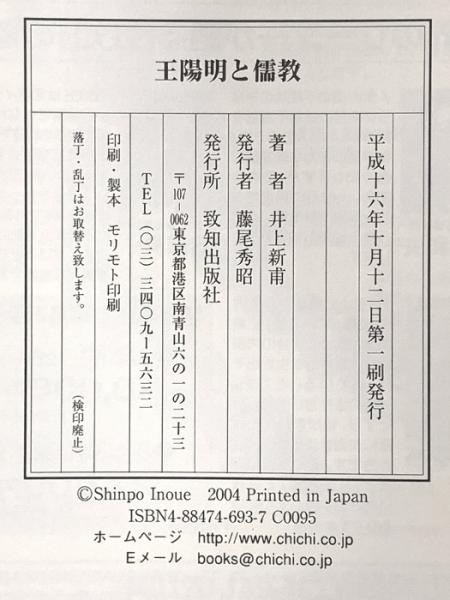 王陽明と儒教
平成十六年十月十二日第一刷発行
著者 井上新甫
発行者 藤尾秀昭
発行所 致知出版社
〒107-0062 東京都港区南青山六の一の二十三
TEL(〇三)三四〇九ー五六三二
印刷・製本 モリモト印刷
落丁・乱丁はお取替え致します。 (検印廃止)
©Shinpo Inoue 2004 Printed in Japan
ISBN4-88474-693-7 C0095
ホームページ http://www.chichi.co.jp
Eメール books@chichi.co.jp